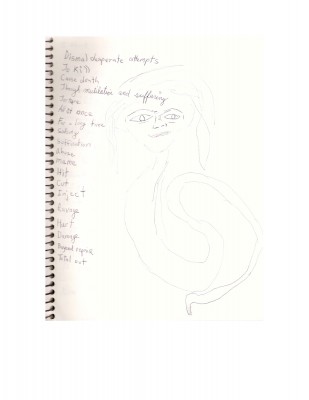 Dismal desperate attempts
To Kill
Cause death
Through mutilation and suffering
To rape
All at once
For a long time
Suffering
Humiliation
Abuse
Maime
Hit
Cut
Inject
Ravage
Hurt
Damage
Beyond repair
Total out